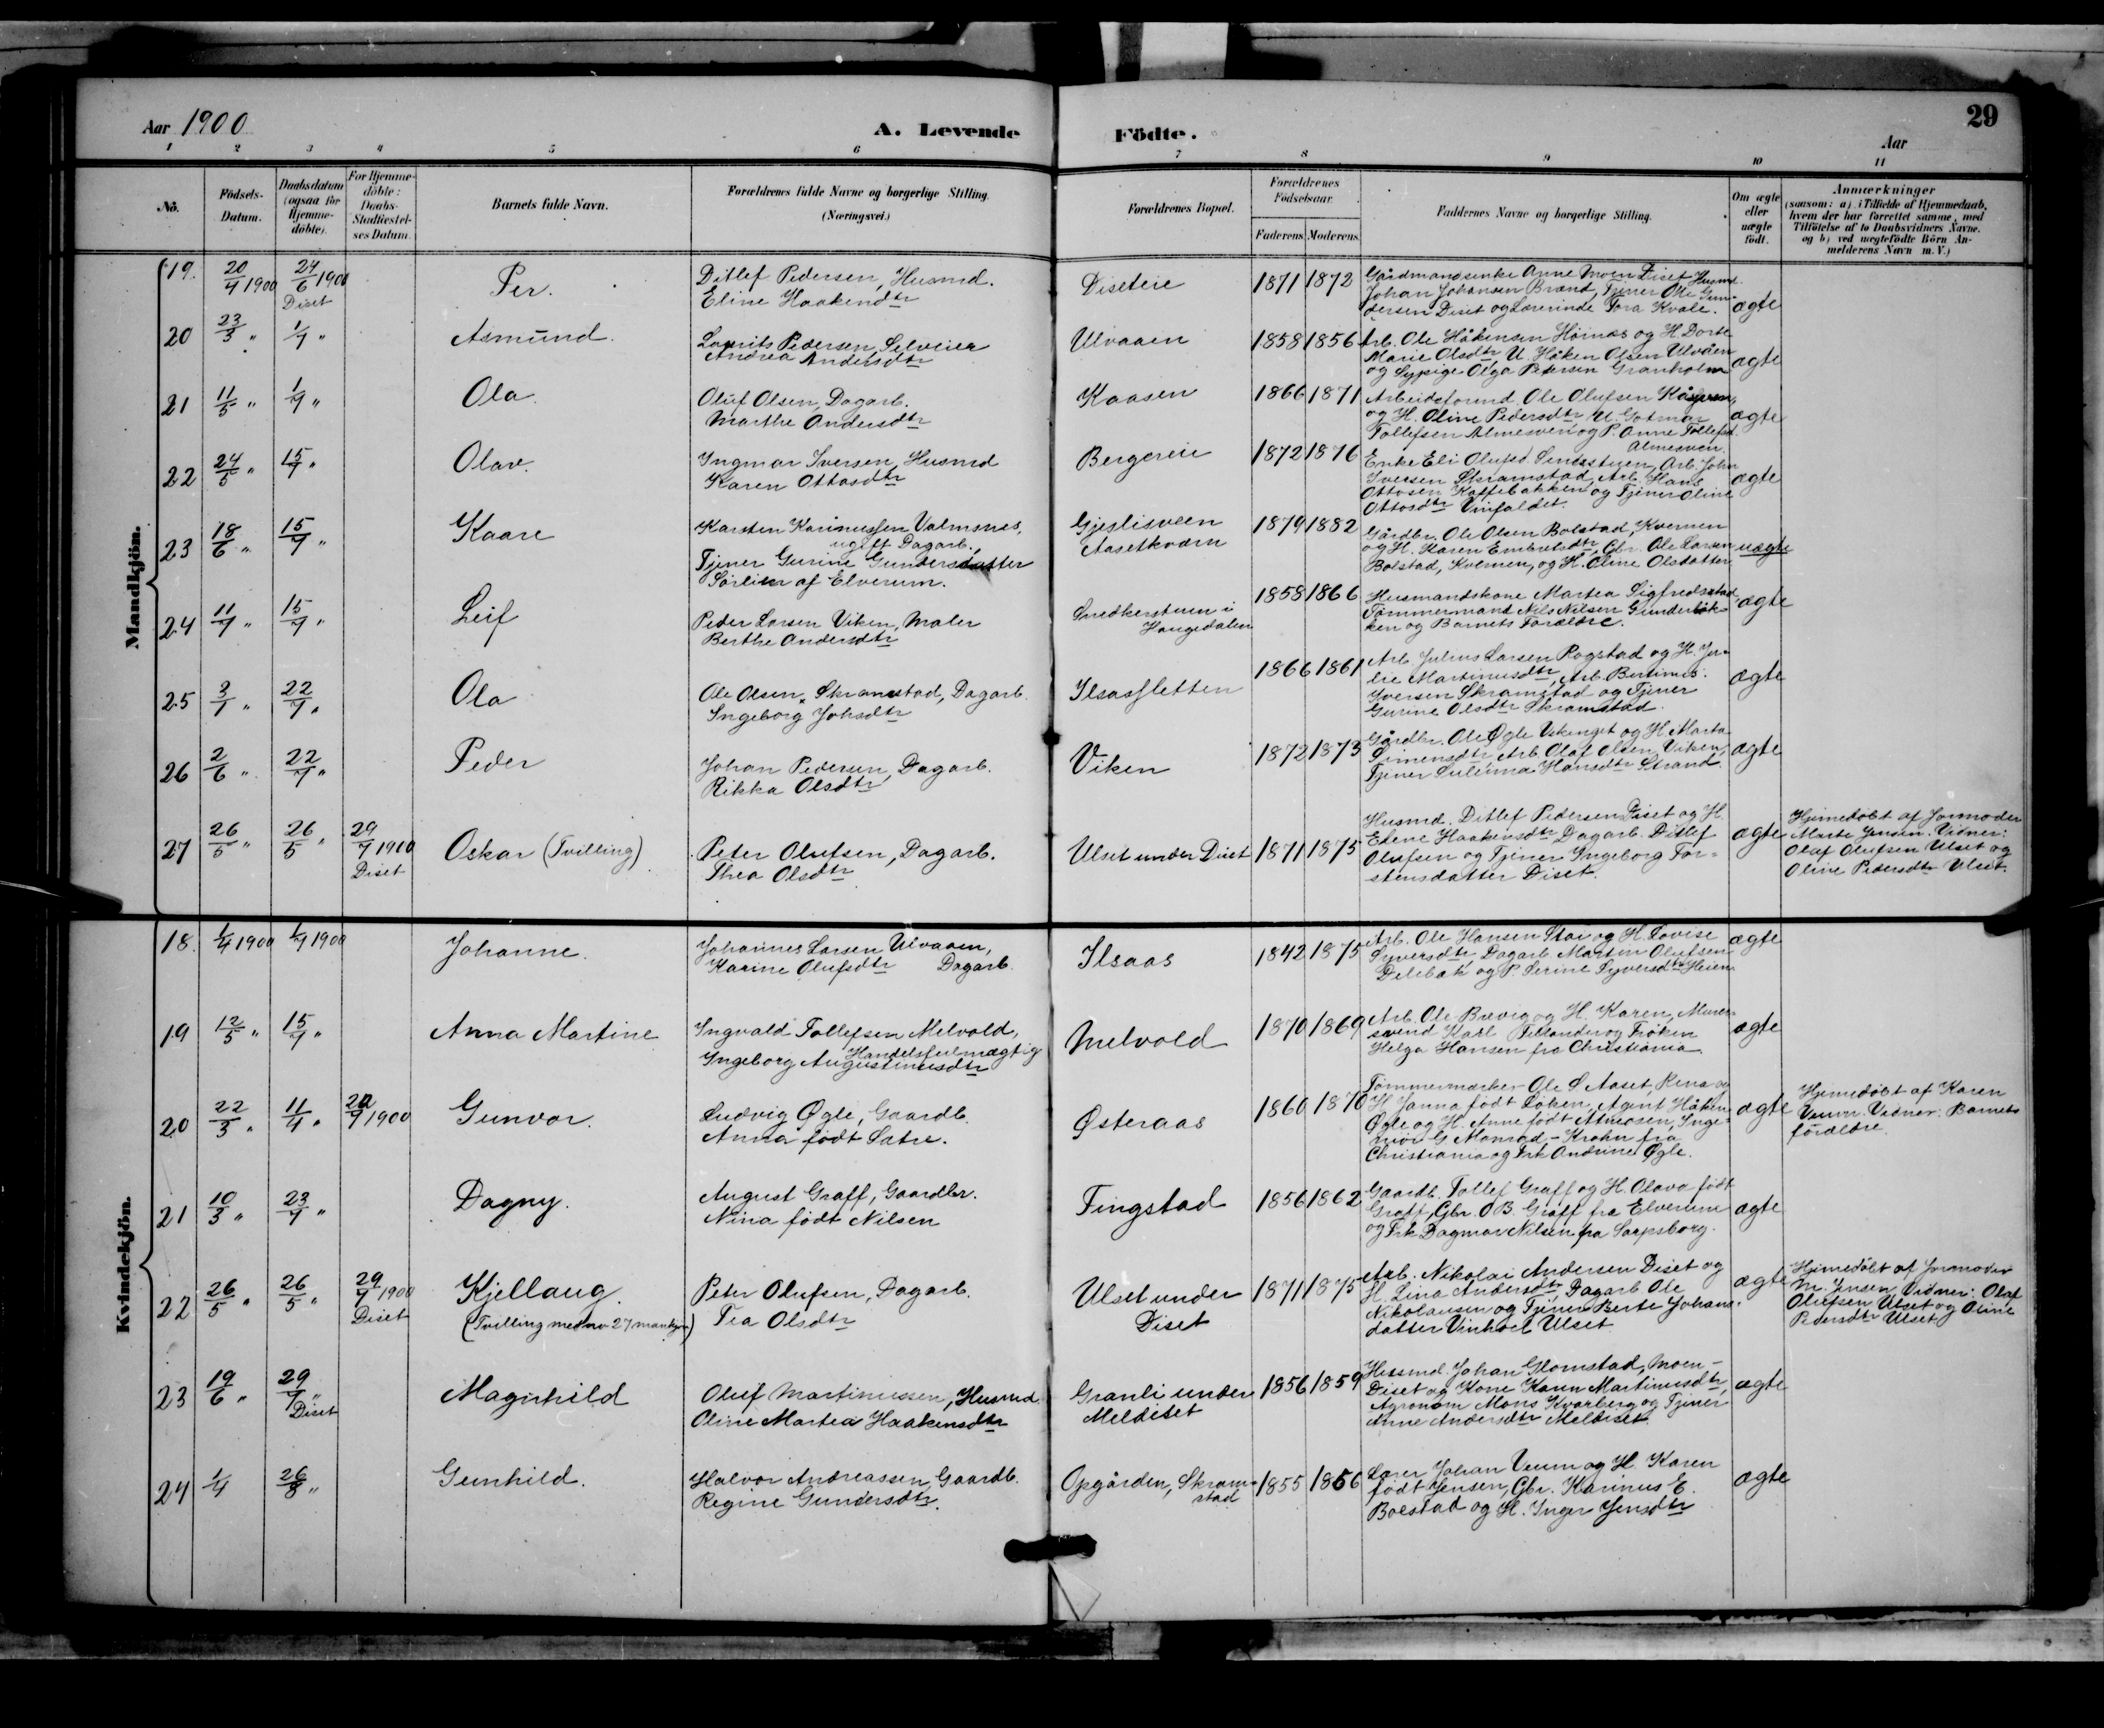 Aar 1900
A. Levende Födte.
29
Aar
1 2 3 4 5 6 7 8 9 10 11
No.
Födsels-Datum.
Daabsdatum (ogsaa for Hjemme-döbte).
For Hjemme-döbte: Daabs-Stadfæstel-ses Datum.
Barnets fulde Navn.
Forældrenes fulde Navne og borgerlige Stilling. (Næringsvei.)
Forældrenes Bopæl.
Forældrenes Födselsaar.
Faderens Moderens
Faddernes Navne og borgerlige Stilling.
Om ægte eller uægte födt.
Anmærkninger
(saasom: a) i Tilfælde af Hjemmedaab,
hvem der har forrettet samme, med
Tilföielse af to Daabsvidners Navne.
og b) ved uægtefödte Börn An-
melderens Navn m. V.)
Mandkjön.
19. 20/4 1900 24/6 1900 Diset
Per.
Ditlef Pedersen, Husmd.
Eline Haakendtr
Diseteie
1871 1872
Gårdmandsenke Anne Moen Diset, Husmd.
Johan Johansen Brænd, Tjener Ole Gun-
dersen Diset og Lærerinde Tora Kvale.
ægte
20 23/3 " 1/7 "
Asmund.
Laurits Pedersen, Selveier
Andrea Andersdtr
Ulvaaen
1858 1856
Arb. Ole Håkensen Höinæs og H. Dorte
Marie Olsdtr U. Håken Olsen Ulvåen
og Sypige Olga Petersen Granholm
ægte
21 11/5 " 1/7 "
Ola
Oluf Olsen, Dagarb.
Marthe Andersdtr
Kaasen
1866 1871
Arbeidsformd. Ole Olufsen Kåsveen,
og H. Oline Pedersdtr, U. Gotmar
Tollefsen Almesveen og P. Anne Tollefsd.
Almesveen.
ægte
22 24/5 " 15/7 "
Olav.
Ingmar Iversen, Husmd
Karen Ottosdtr
Bergereie
1872 1876
Enke Eli Olufsd. Sendstuen, Arb. John
Iversen Skramstad, Arb. Hans
Ottosen Kaffebakken og Tjener Oline
Ottosdtr Vinfaldet.
ægte
23 18/6 " 15/7 "
Kaare
Karsten Karinussen Valmsnes,
ugift Dagarb.,
Tjener Gurine Gundersdatter
Sörlien af Elverum.
Gjeslisveen
Aasetkværn
1879 1882
Gårdbr. Ole Olsen Bolstad, Kvernen
og H. Karen Embretsdtr, Gbr. Ole Larsen
Bolstad, Kvernen, og H. Oline Olsdatter
uægte
24 11/7 " 15/7 "
Leif
Peder Larsen Viken, Maler
Berthe Andersdtr
Snedkerstuen i
Haugedalen
1858 1866
Husmandskone Martea Sigfredsstad
Tömmermand Nils Nilsen Gunderbak-
ken og Barnets Forældre.
ægte
25 3/7 " 22/7 "
Ola
Ole Olsen, Skramstad, Dagarb.
Ingeborg Johsdtr
Ilsassletten
1866 1861
Arb. Julius Larsen Rogstad og H. Ju-
lie Martinusdtr, Arb. Bertinus
Iversen Skramstad og Tjener
Gurine Olsdtr Skramstad.
ægte
26 2/6 " 22/7 "
Peder
Johan Pedersen, Dagarb.
Rikka Olsdtr
Viken
1872 1873
Gårdbr. Ole Øgle Vikenget og H. Marta
Simensdtr, Arb. Olaf Olsen Viken,
Tjener Hansdtr Strand.
ægte
27 26/5 " 26/5 " 29/7 1900 Diset
Oskar (Tvilling)
Peter Olufsen, Dagarb.
Thea Olsdtr
Ulset under Diset
1871 1875
Husmd. Ditlef Pedersen Diset og H.
Elene Haakensdtr, Dagarb. Ditlef
Olufsen og Tjener Ingeborg Tor-
stensdatter Diset.
ægte
Hjemedöbt af Jormoder
Marte Jensen. Vidner:
Olaf Olufsen Ulset og
Oline Pedersdtr Ulset.
Kvindekjön.
18. 1/4 1900 1/7 1900
Johanne.
Johannes Larsen Ulvaaen,
Karine Olufsdtr Dagarb.
Ilsaas
1842 1875
Arb. Ole Hansen Stai og H. Lovise
Syversdtr, Dagarb. Martin Olufsen
Delebæk og P. Serine Syversdtr Heien
ægte
19 12/5 " 15/7 "
Anna Martine
Ingvald Tollefsen Melvold,
Handelsfulmægtig
Ingeborg Augustinusdtr
Melvold
1870 1869
Arb. Ole Brævig og H. Karen, Murer-
svend Karl Fellander og Fröken
Helga Hansen fra Christiania
ægte
20 22/3 " 11/4 " 22/7 1900
Gunvor.
Ludvig Øgle, Gaardb.
Anna født Satre.
Østeraas
1860 1870
Tømmermærker Ole O Aaset, Rena og
H. Janna født Løken, Agent Håken
Øgle og H. Anne født Atneosen, Inge-
niør G. Monrad-Krohn fra
Christiania og Frk Andrine Øgle.
ægte
Hjemedöbt af Karen
Veum. Vidner: Barnets
forældre.
21 10/3 " 23/7 "
Dagny.
August Graff, Gaardbr.
Nina født Nilsen
Tingstad
1856 1862
Gaardb. Tollef Graff og H. Olava født
Graff, Gbr. O B. Graff fra Elverum
og Frk Dagmar Nilsen fra Sarpsborg.
ægte
22 26/5 " 26/5 " 29/7 1900 Diset
Kjellaug.
(Tvilling med no 27 mankjøn)
Peter Olufsen, Dagarb.
Tea Olsdtr
Ulset under
Diset
1871 1875
Arb. Nikolai Andersen Diset og
H. Lina Andersdtr, Dagarb Ole
Nikolaisen og Tjener Berte Johans-
datter Vinhæl Ulset
ægte
Hjemedöbt af Jormoder
M. Jensen, Vidner: Olaf
Olufsen Ulset og Oline
Pedersdtr Ulset
23 19/6 " 29/7 " Diset
Magnhild
Oluf Martinussen, Husmd
Oline Martea Haakensdtr
Granli under
Meldiset
1856 1859
Husmd Johan Glomstad, Moen-
Diset og Kone Karen Martinusdtr,
Agronom Mons Kvarberg og Tjener
Anne Andersdtr Meldiset.
ægte
24 1/4 26/8 "
Gunhild.
Halvor Andreassen, Gaardb.
Regine Gundersdtr.
Opgården, Skram-
stad
1855 1856
Lærer Johan Veum og H. Karen
født Jensen, Gbr. Karinus E.
Bolstad og H. Inger Jensdtr
ægte